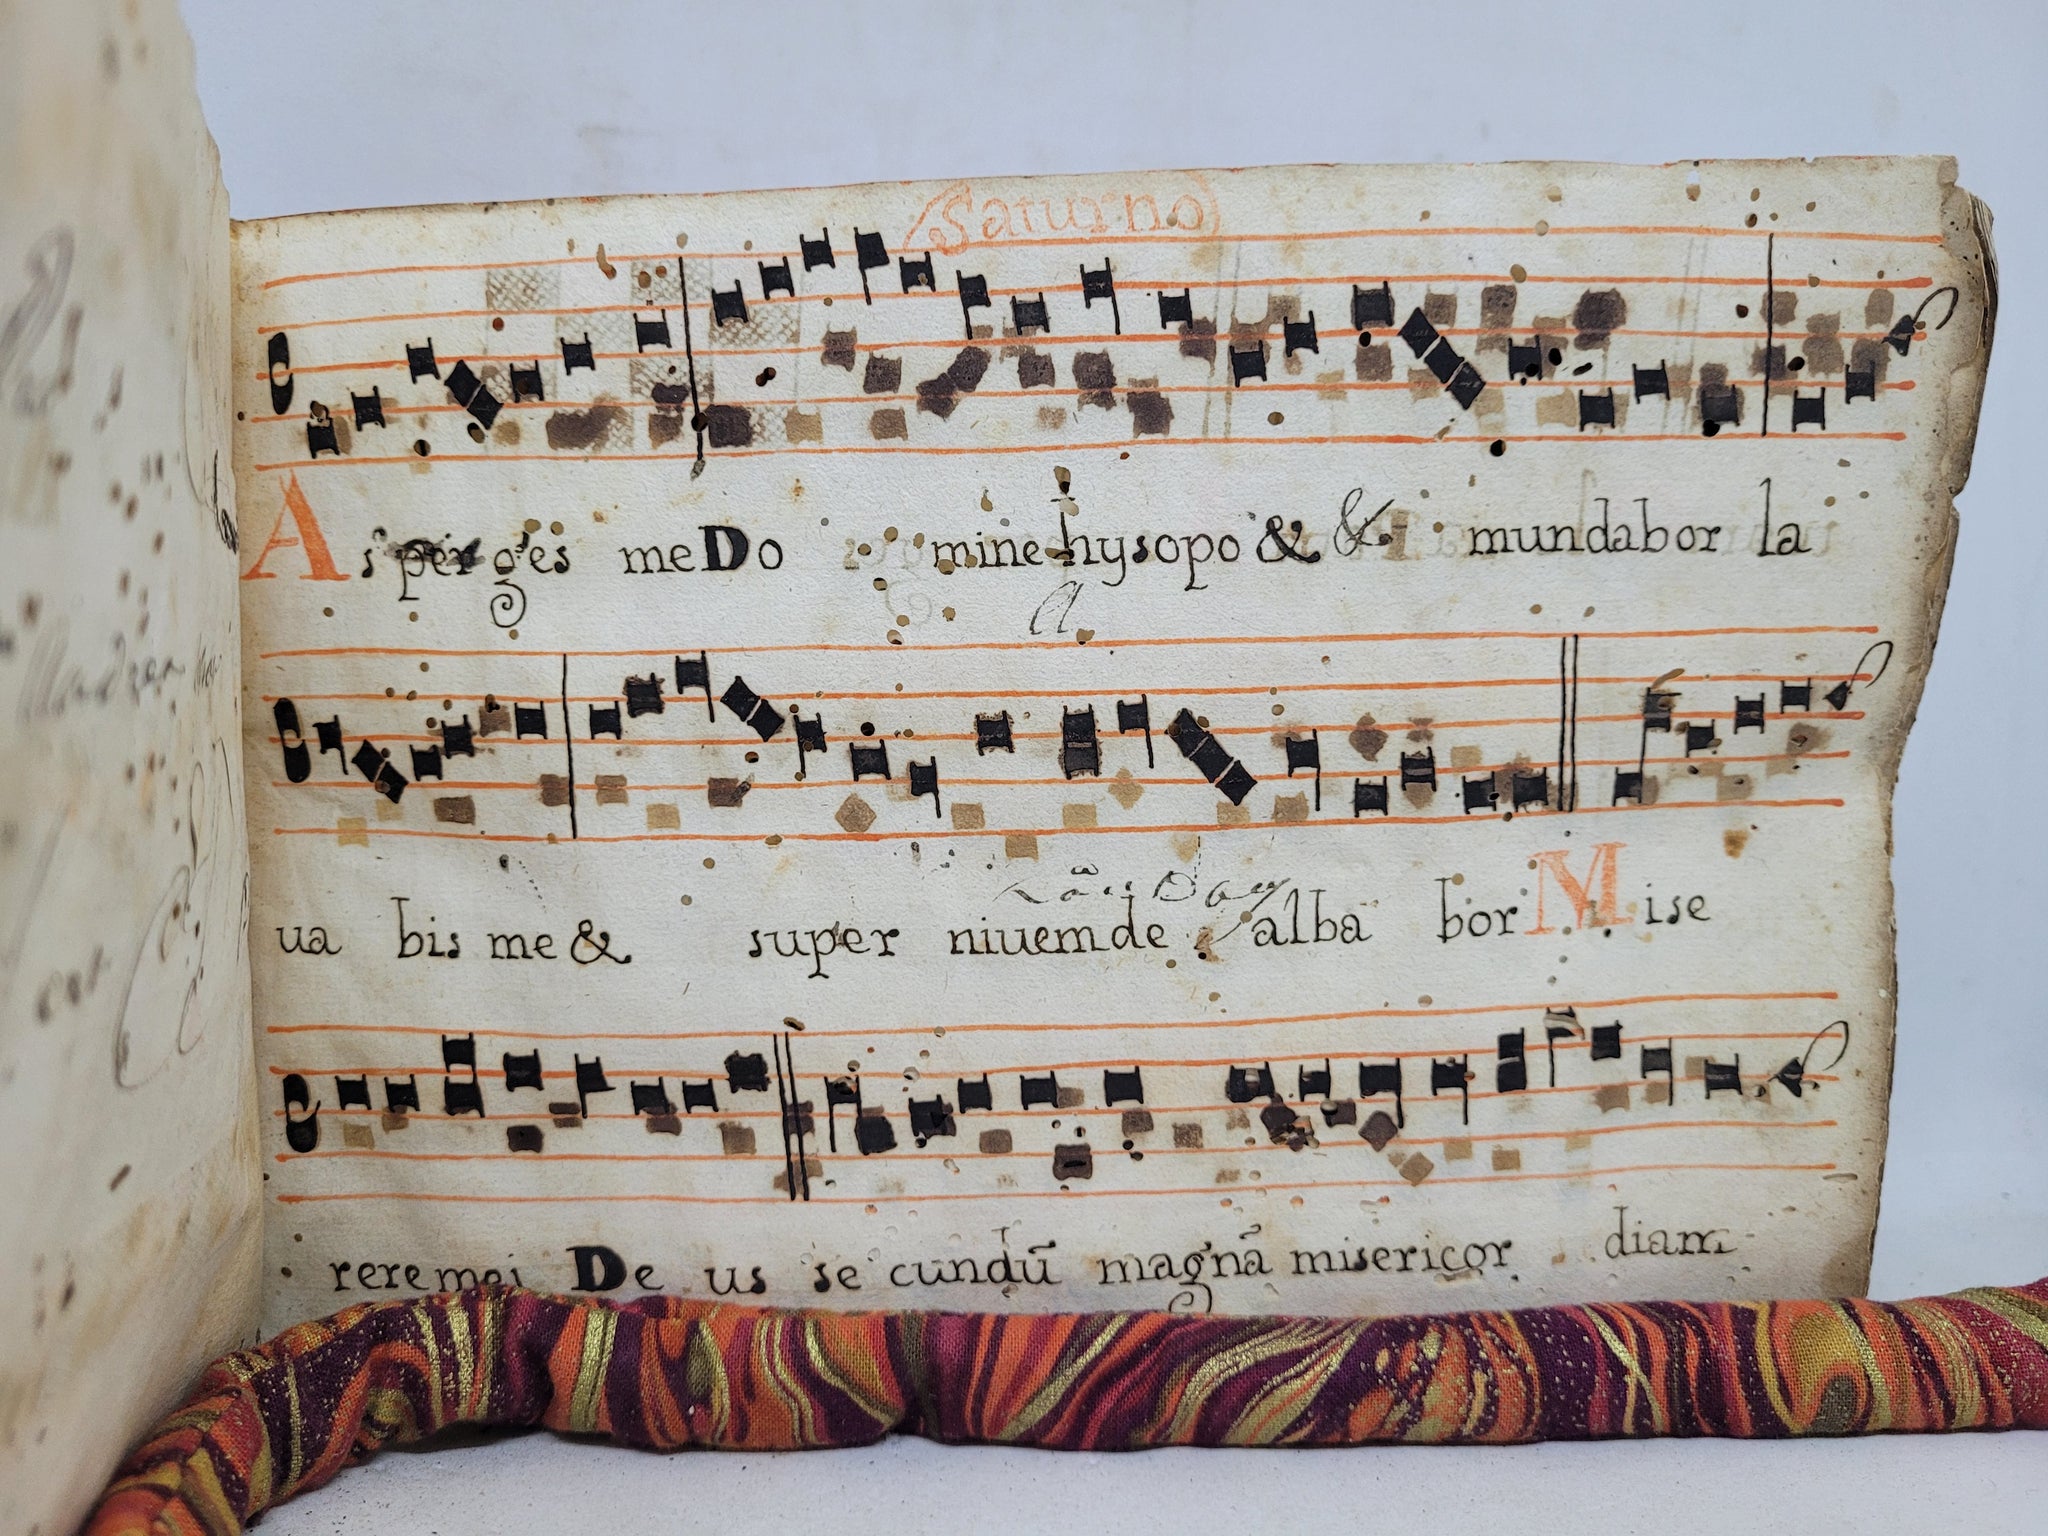 Saturno
Asperges me Domine hysopo & &. mundabor la
a
ua bis me & super niuem de alba bor Mise
rere mei De us se cundũ magnã misericor diam